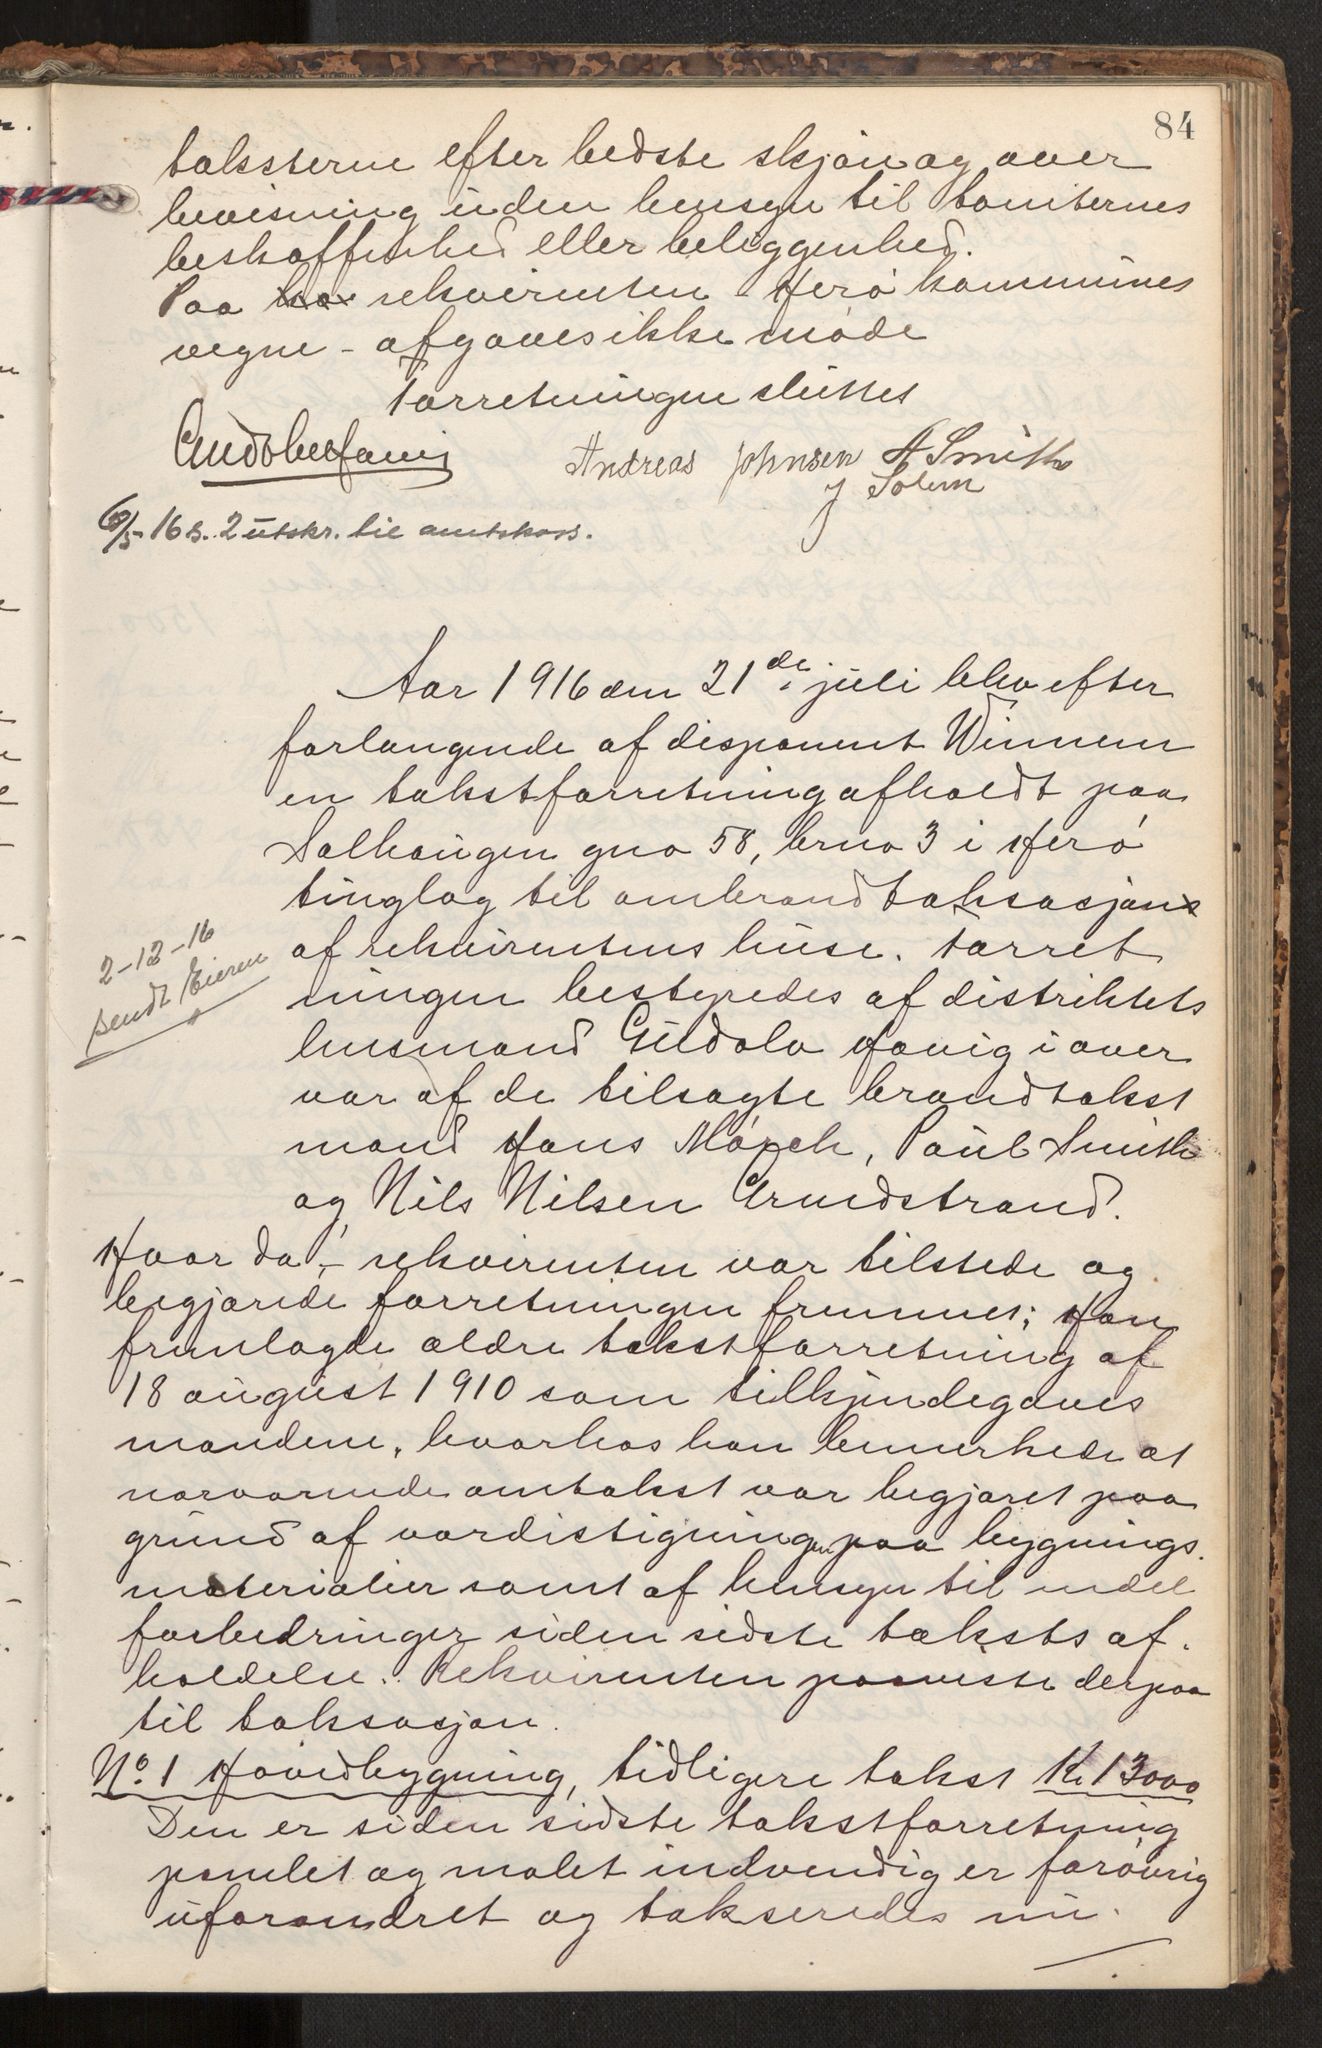 84
taksterne efter bedste skjøn og over
bevisning uden hensyn til tomternes
beskaffenhed eller beliggenhed.
Paa rekvirenten - Herø kommunes
vegne - afgaves ikke møde
Forretningen sluttet
Andreas Johnsen A Smith
J Solem
6/5-16 s. 2 utskr. til amtskass.
Aar 1916 den 21de juli blev efter
forlangende af disponent Winnem
en takstforretning afholdt paa
Salhaugen gno 58, brno 3 i Herø
tinglag til ombrandtaksasjon
af rekvirentens huse. Forret
ningen bestyredes af distriktets
lensmand Gudolv Favig i over
vær af de tilsagte brandtakst
mænd Hans Mørch, Paul Smith
og Nils Nilsen Grundstrand.
2-12-16
sendt Eieren
Hvor da, - rekvirenten var tilstede og
begjærede forretningen fremmet; Han
fremlagde ældre takstforretning af
18 august 1910 som tilkjendegaves
mændene, hvorhos han bemerkede at
nærværende omtakst var begjæret paa
grund af værdistigningen paa bygnings.
materialier samt af hensyn til endel
forbedringer siden sidste taksts af.
holdelse. Rekvirenten paaviste derpaa
til taksasjon.
No. 1 Hovedbygning, tidligere takst Kr. 13000
Den er siden sidste takstforretning
panelet og malet indvendig er forøvrig
uforandret og takseredes nu.